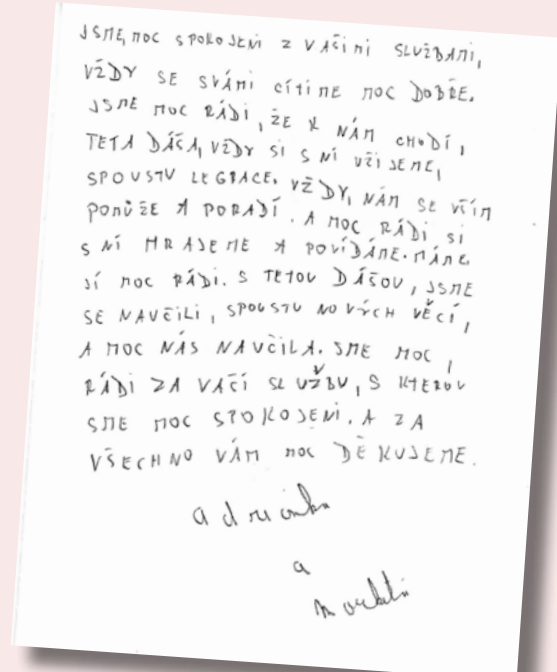 JSME, MOC SPOKOJENI Z VAČIMI SLUŽBAMI,
VŽDY SE SVÁMI CÍTIME MOC DOBŘE.
JSME MOC RÁDI, ŽE K NÁM CHODÍ,
TETA DÁŠA, VŽDY SI S NÍ UŽIJEME,
SPOUSTU LEGRACE. VŽDY, NÁM SE VŠÍM
POMŮŽE A PORADÍ. A MOC RÁDI SI
S NÍ HRAJEME A POVÍDÁME. MÁME
JÍ MOC RÁDI. S TETOU DÁŠOU, JSME
SE NAUČILI, SPOUSTU NOVÝCH VĚCÍ,
A MOC NÁS NAUČILA. SME MOC,
RÁDI ZA VAČÍ SLUŽBU, S KTEROU
SME MOC SPOKOJENI. A ZA
VŠECHNO VÁM MOC DĚKUJEME.
a